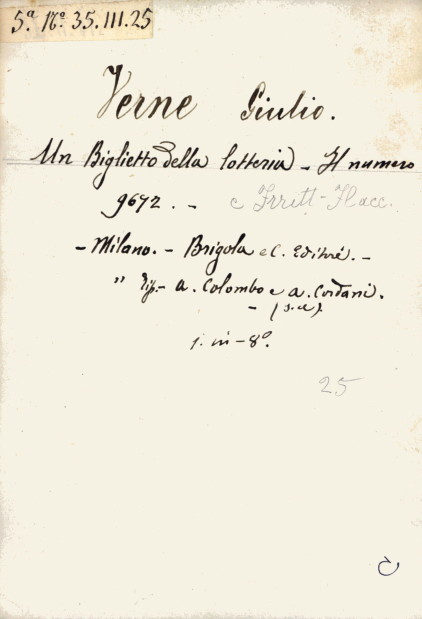 5ª Nº 35.III.25
Verne Giulio.
Un Biglietto della lotteria - Il numero
9672. - e Frritt-Flacc.
- Milano. - Brigola e C. Editori. -
" Tip. - A. Colombo e A. Cordani.
- (s.a.)
1. in - 8º.
25